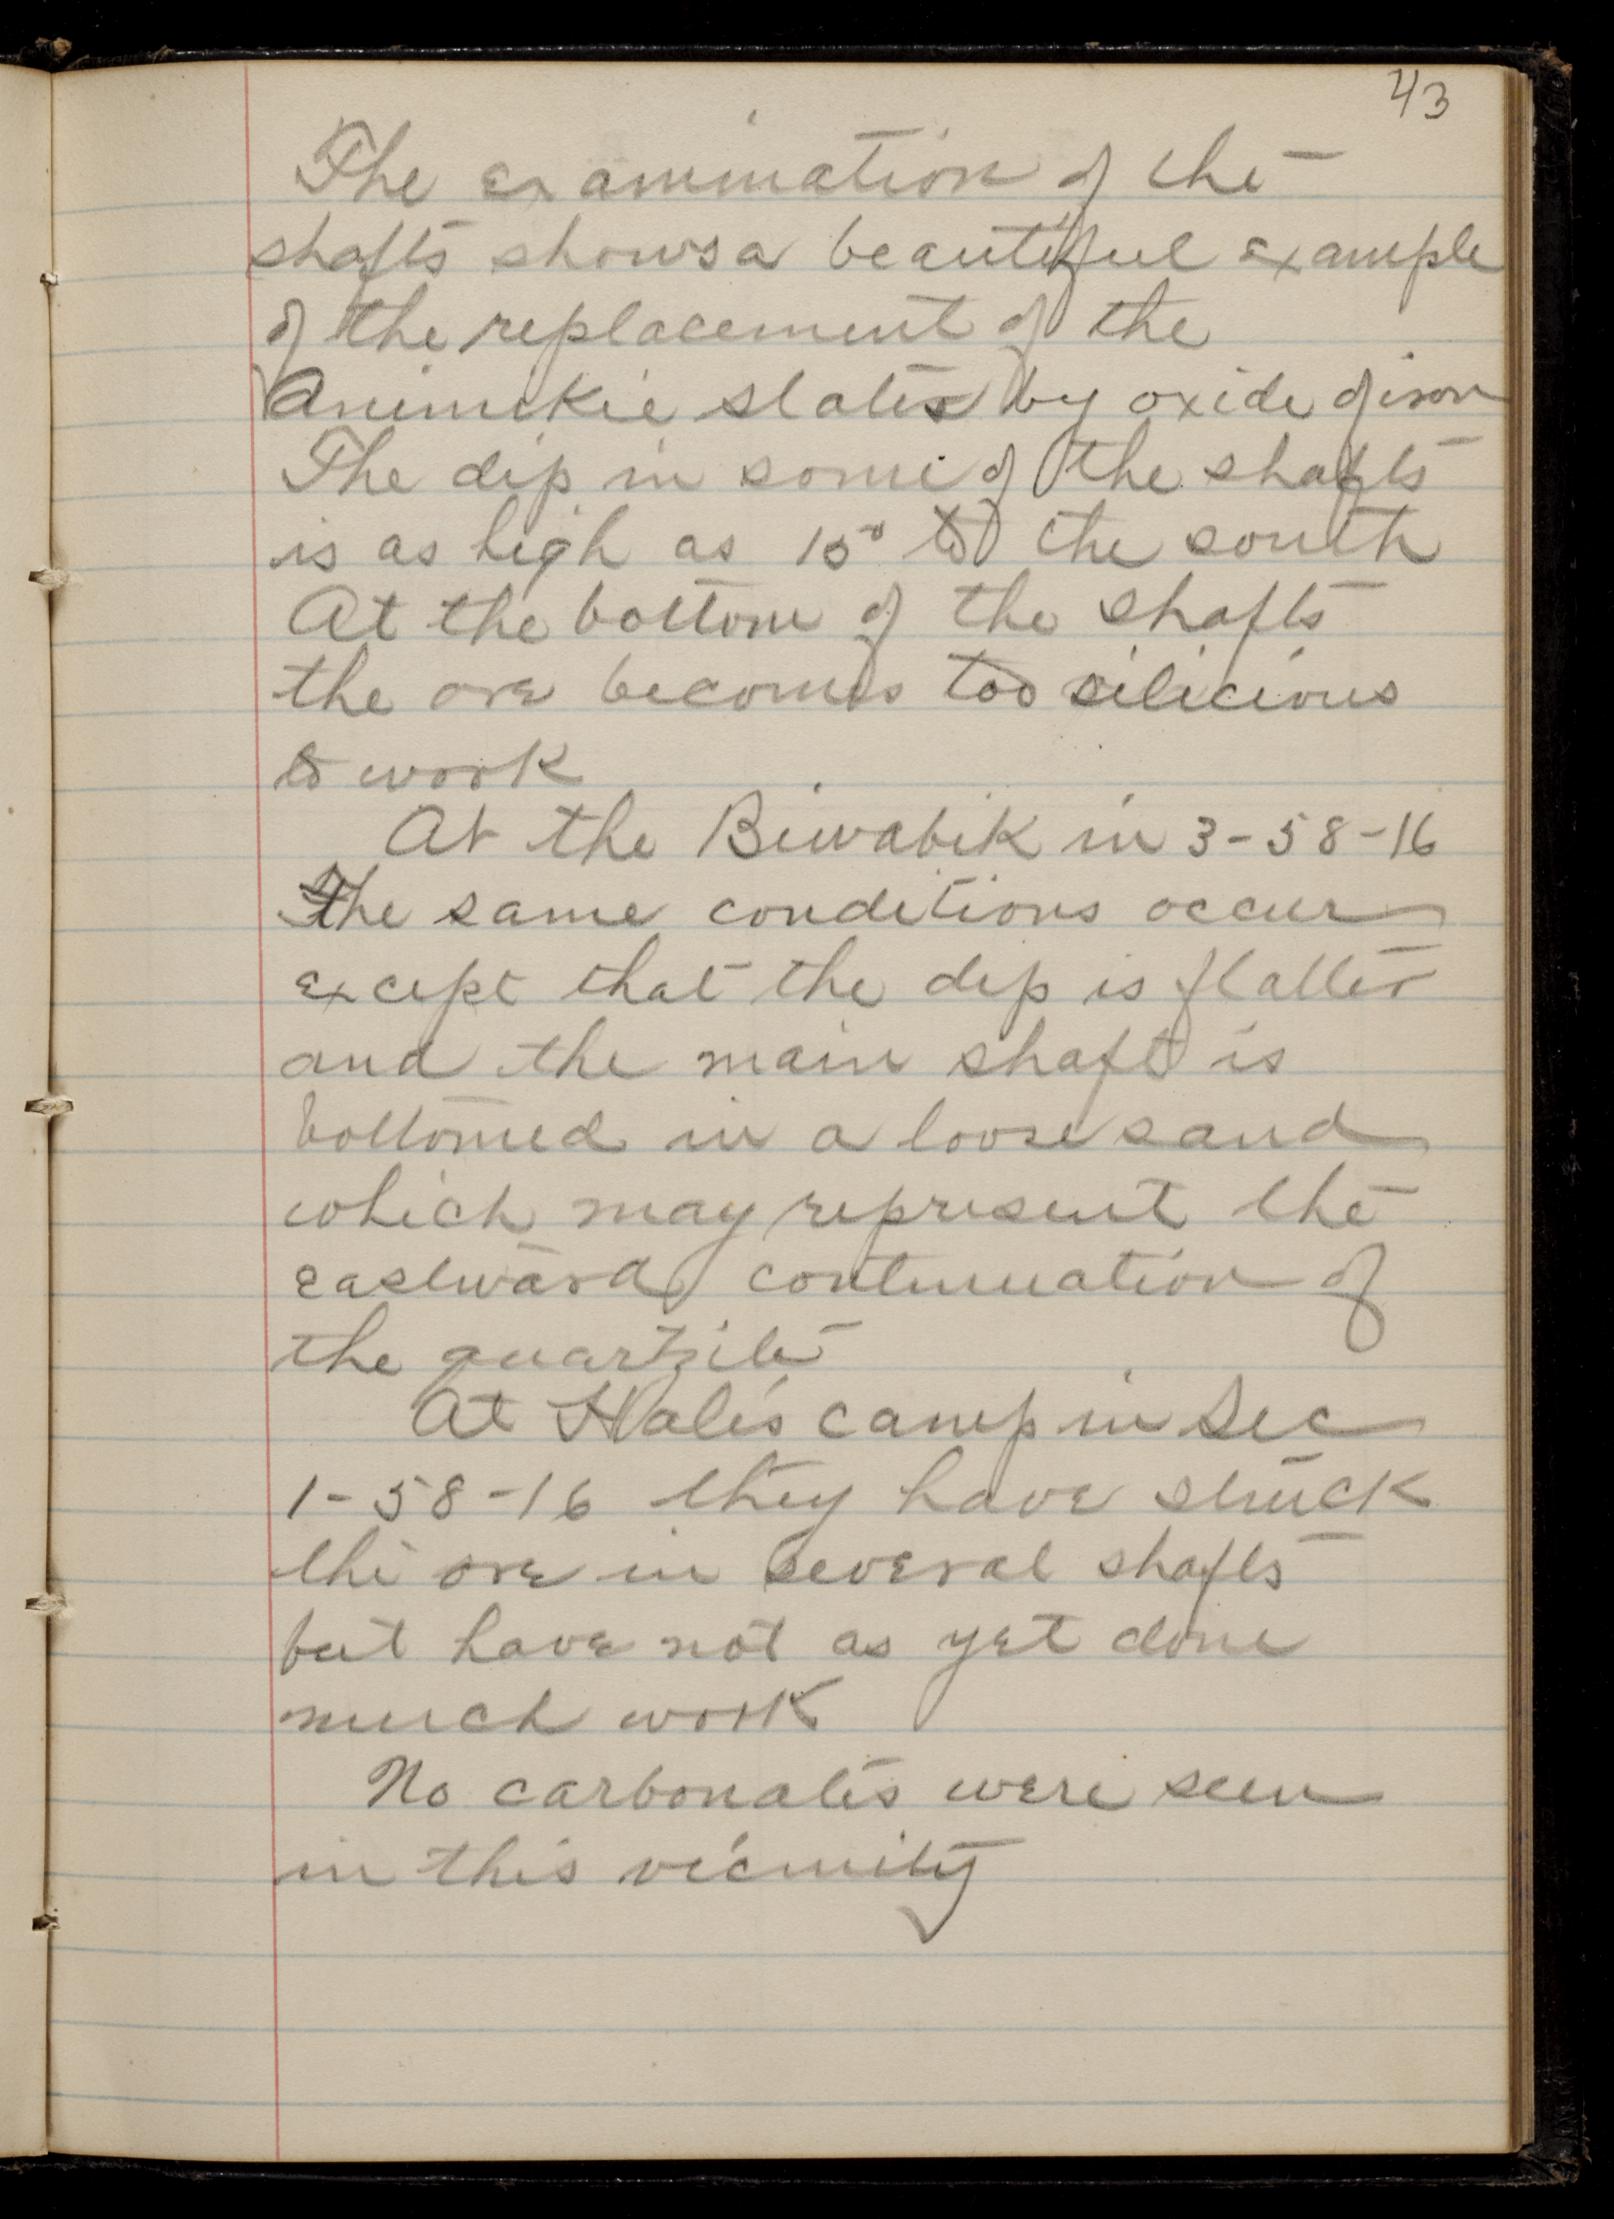 43
The examination of the
shafts shows a beautiful example
of the replacement of the
Animikie slates by oxide of iron
The dip in some of the shafts
is as high as 15° to the south
At the bottom of the shafts
the ore becomes too silicious
to work
At the Biwabik in 3-58-16
The same conditions occur
except that the dip is flatter
and the main shaft is
bottomed in a loose sand
which may represent the
eastward continuation of
the quartzite
At Hale's camp in Sec
1-58-16 they have struck
the ore in several shafts
but have not as yet done
much work
No carbonates were seen
in this vicinity